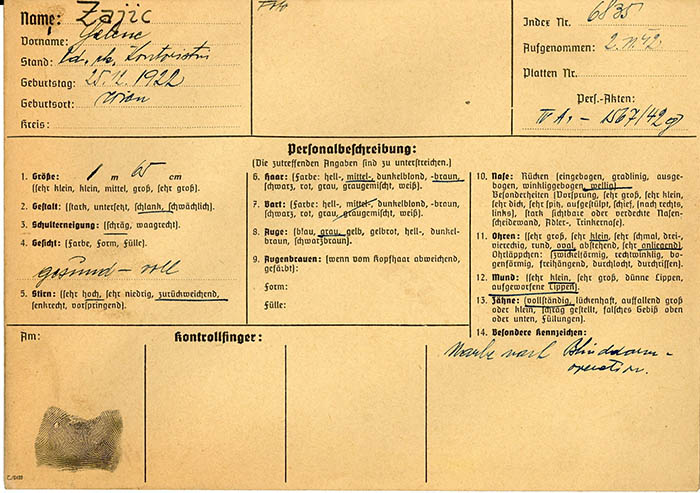 Name: Zajic
Vorname: Helene
Stand: led. k. Kontoristin
Geburtstag: 25.12.1922
Geburtsort: Wien
Kreis:
Index Nr. 6835
Aufgenommen: 2.11.42
Platten Nr.
Pers.-Akten:
IV A - 1567/42 g
Personalbeschreibung:
(Die zutreffenden Angaben sind zu unterstreichen.)
1. Größe: 1 m 65 cm
(sehr klein, klein, mittel, groß, sehr groß).
2. Gestalt: (stark, untersetzt, schlank, schwächlich).
3. Schulterneigung: (schräg, waagrecht).
4. Gesicht: (Farbe, Form, Fülle).
gesund - voll
5. Stirn: (sehr hoch, sehr niedrig, zurückweichend,
senkrecht, vorspringend).
6. Haar: (Farbe: hell-, mittel-, dunkelblond, -braun,
schwarz, rot, grau, graugemischt, weiß).
7. Bart: (Farbe: hell-, mittel-, dunkelblond, -braun,
schwarz, rot, grau, graugemischt, weiß).
8. Auge: (blau, grau, gelb, gelbrot, hell-, dunkel-
braun, schwarzbraun).
9. Augenbrauen: (wenn vom Kopfhaar abweichend,
gefärbt):
Form:
Fülle:
10. Nase: Rücken (eingebogen, gradlinig, ausge-
bogen, winkliggebogen, wellig)
Besonderheiten (Vorsprung, sehr groß, sehr klein,
sehr dick, sehr spitz, aufgestülpt, schief, (nach rechts,
links), stark sichtbare oder verdeckte Nasen-
scheidewand, Adler-, Trinkernase).
11. Ohren: (sehr groß, sehr klein, sehr schmal, drei-,
vierechig, rund, oval, abstehend, sehr anliegend).
Ohrläppchen: (zwickelförmig, rechtwinklig, bo-
genförmig, freihängend, durchlocht, durchrissen).
12. Mund: (sehr klein, sehr groß, dünne Lippen,
aufgeworfene Lippen).
13. Zähne: (vollständig, lückenhaft, auffallend groß
oder klein, schräg gestellt, falsches Gebiß oben
oder unten, Füllungen).
14. Besondere Kennzeichen:
Narbe nach Blinddarm-
operation.
Am:
Kontrollfinger: